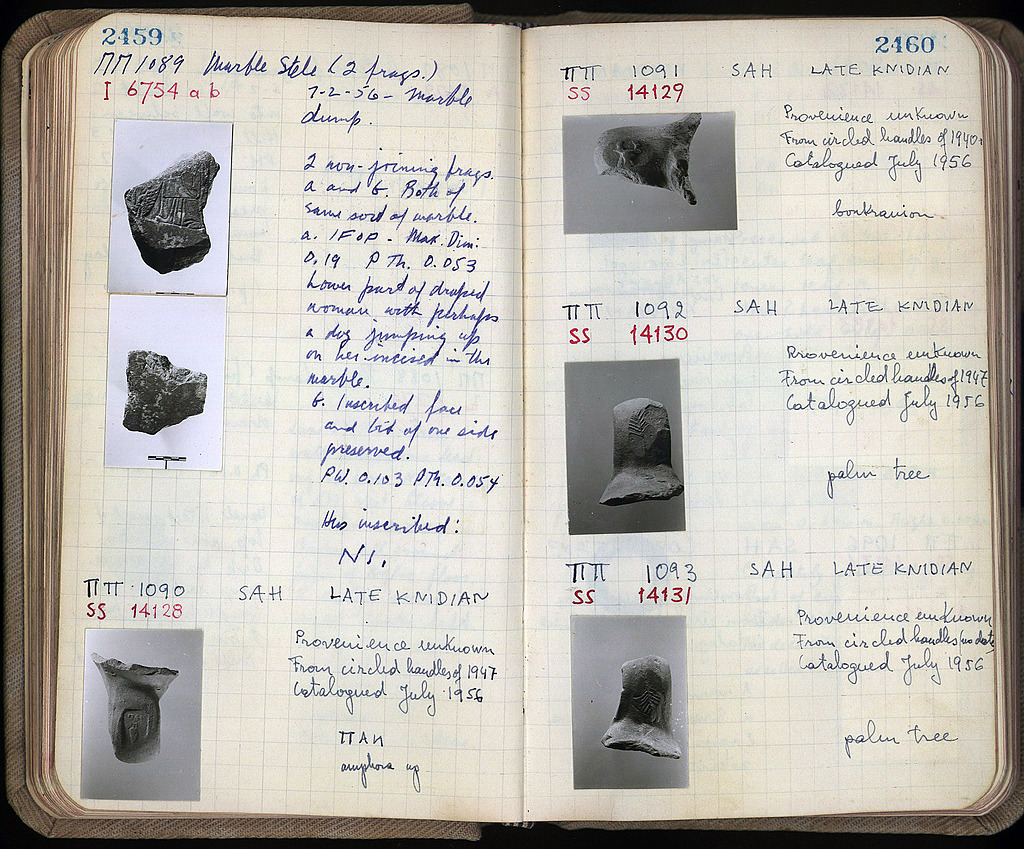 2459
ΠΠ 1089 Marble Stele (2 frags.)
I 6754 a b
7-2-56 - Marble
dump.
2 non-joining frags.
a and b. Both of
same sort of marble.
a. - Max. Dim:
0.19 P Th. 0.053
Lower part of draped
woman with perhaps
a dog jumping up
on her incised in the
marble.
b. Inscribed face
and bit of one side
preserved.
PW. 0.103 PTh. 0.054
inscribed:
ΠΠ 1090 SAH LATE KNIDIAN
SS 14128
Provenience unknown
From circled handles of 1947
Catalogued July 1956
amphora
2460
ΠΠ 1091 SAH LATE KNIDIAN
SS 14129
Provenience unknown
From circled handles of 1940
Catalogued July 1956
boukranion
ΠΠ 1092 SAH LATE KNIDIAN
SS 14130
Provenience unknown
From circled handles of 1947
Catalogued July 1956
palm tree
ΠΠ 1093 SAH LATE KNIDIAN
SS 14131
Provenience unknown
From circled handles (no date)
Catalogued July 1956
palm tree